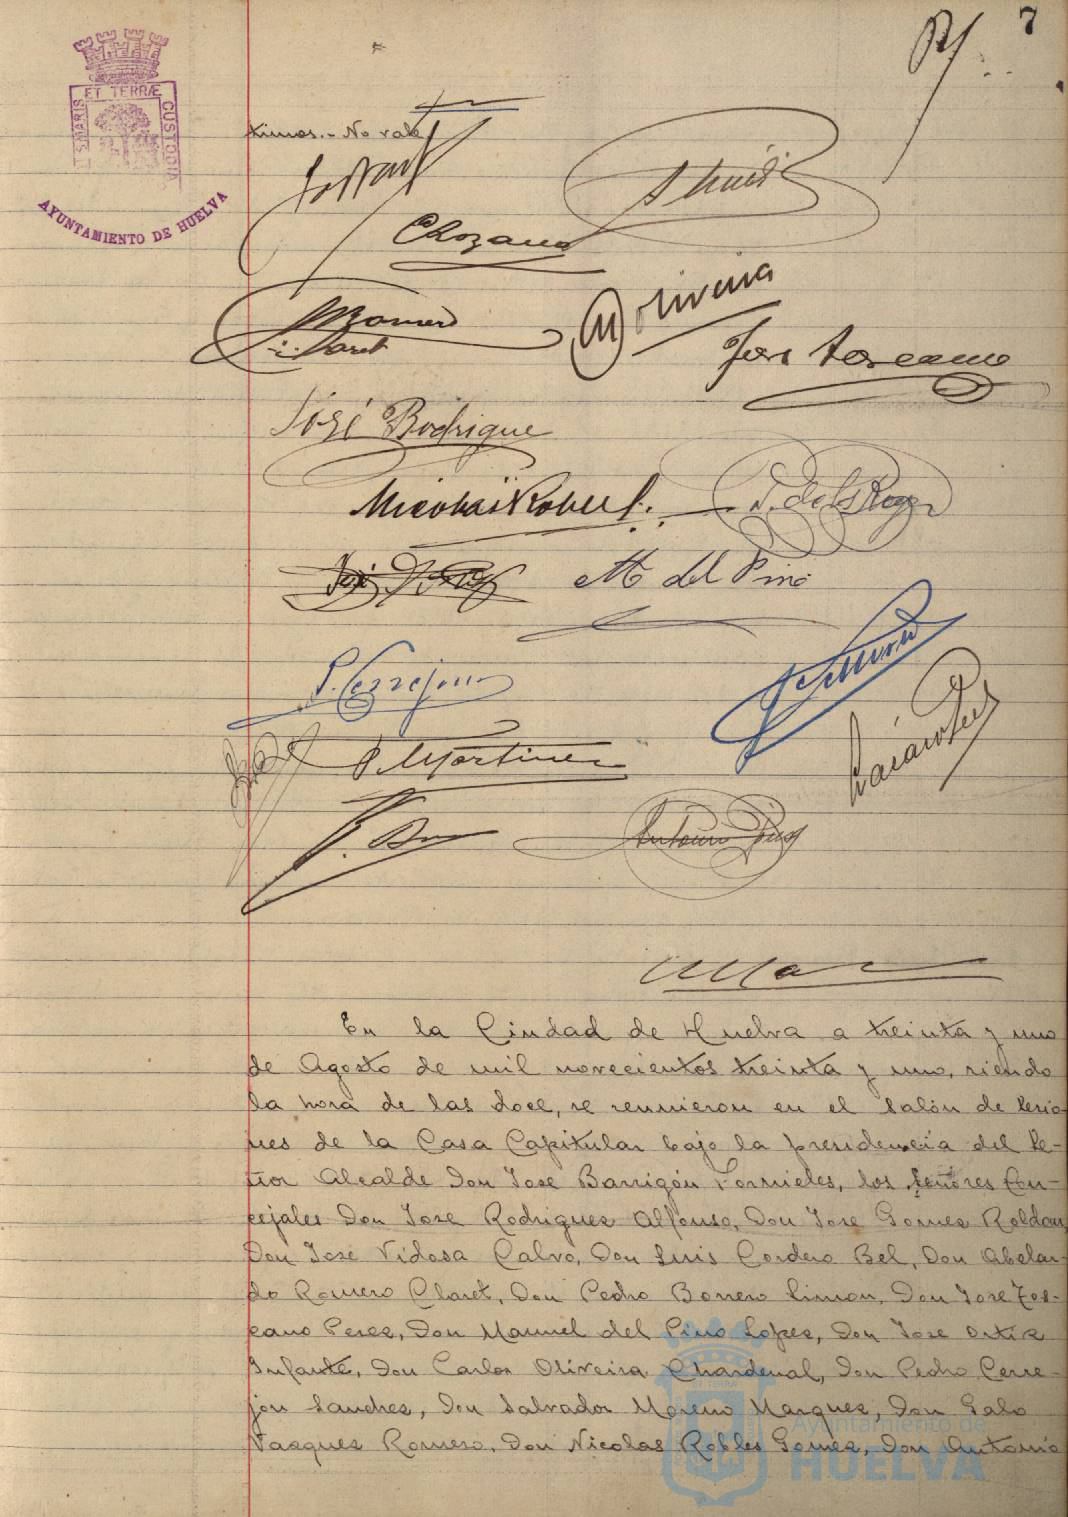 7
ET TERRÆ
S MARIS
CUSTODIA
AYUNTAMIENTO DE HUELVA
timos.- No vale
Oliveira
José Toscano
José Rodrigue
M del Pino
P. Cerrejon
P. Martinez
En la Ciudad de Huelva a treinta y uno
de Agosto de mil novecientos treinta y uno, siendo
la hora de las doce, se reunieron en el Salón de Sesio-
nes de la Casa Capitular bajo la presidencia del Se-
ñor Alcalde Don Jose Barrigón Fornieles, los señores Con-
cejales Don Jose Rodriguez Alfonso, Don Jose Gomez Roldan,
Don Jose Vidosa Calvo, Don Luis Cordero Bel, Don Abelar-
do Romero Claret, Don Pedro Borrero Limon, Don Jose Tos-
cano Perez, Don Manuel del Pino Lopez, Don Jose Ortiz
Infante, Don Carlos Oliveira Chardenal, Don Pedro Cerre-
jón Sanchez, Don Salvador Moreno Marquez, Don Galo
Vazquez Romero, Don Nicolas Robles Gomez, Don Antonio
Ayuntamiento de
HUELVA